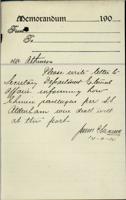 Memorandum 190
From
To
Mr Atkinson
Please write letter to
Secretary Department External
Affairs informing how
Chinese passengers per S.S.
Aldenham were dealt with
at this port